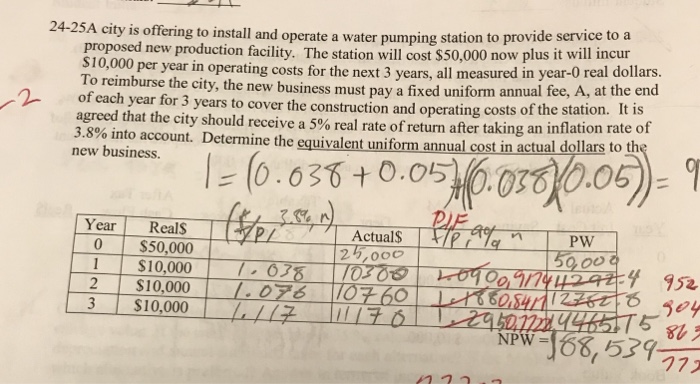 24-25A city is offering to install and operate a water pumping station to provide service to a
proposed new production facility. The station will cost $50,000 now plus it will incur
$10,000 per year in operating costs for the next 3 years, all measured in year-0 real dollars.
To reimburse the city, the new business must pay a fixed uniform annual fee, A, at the end
-2 of each year for 3 years to cover the construction and operating costs of the station. It is
agreed that the city should receive a 5% real rate of return after taking an inflation rate of
3.8% into account. Determine the equivalent uniform annual cost in actual dollars to the
new business.
1 = (0.038 + 0.05)+((0.038)(0.05)) = 9
(F/P, 3.8%, n) P/F
Year Real$ Actual$ F/P, 9% n PW
0 $50,000 25,000 50,000
1 $10,000 1.038 10380 0.9174 952
2 $10,000 1.076 10760 904
3 $10,000 1.117 11170 863
NPW = 88,539
772